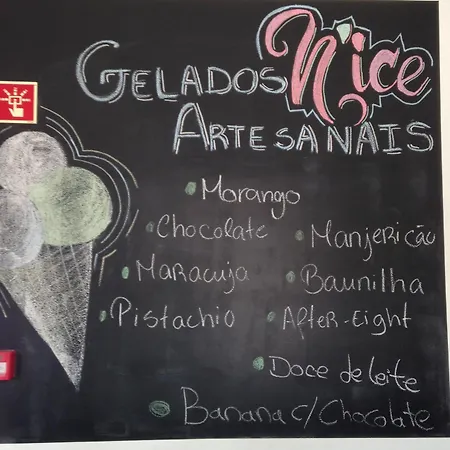 GELADOS N'ice
ARTESANAIS
Morango
Chocolate
Manjericão
Maracuja
Baunilha
Pistachio
After-Eight
Doce de leite
Banana c/ Chocolate